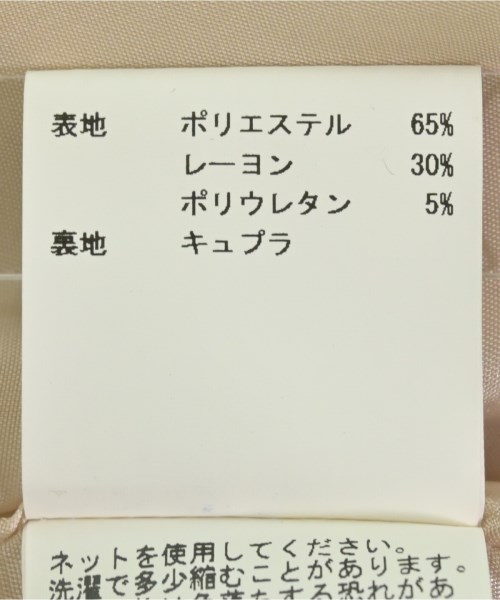 表地 ポリエステル 65%
レーヨン 30%
ポリウレタン 5%
裏地 キュプラ
ネットを使用してください。
洗濯で多少縮むことがあります。
色落ちする恐れがあ